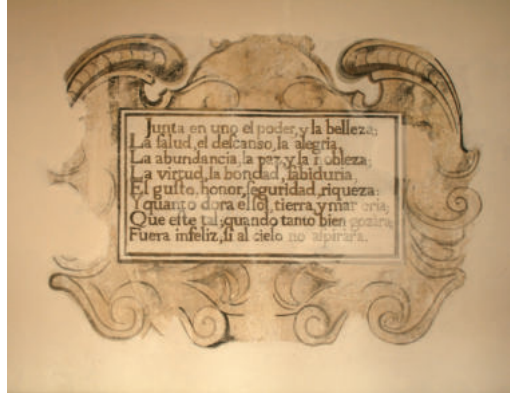 Junta en uno el poder, y la belleza;
La ſalud, el deſcanso, la alegria,
La abundancia, la paz, y la nobleza;
La virtud, la bondad, ſabiduria,
El guſto, honor, ſeguridad, riqueza:
Y quanto dora el ſol, tierra, y mar cria;
Que eſte tal; quando tanto bien gozára;
Fuera infeliz, ſi al cielo no aſpirára.